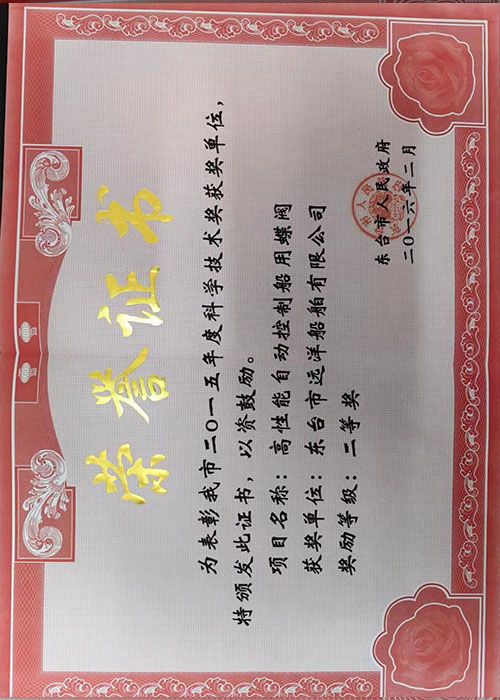 荣誉证书
为表彰我市二〇一五年度科学技术奖获奖单位，
特颁发此证书，以资鼓励。
项目名称：高性能自动控制船用蝶阀
获奖单位：东台市远洋船舶有限公司
奖励等级：二等奖
东台市人民政府
二〇一六年二月